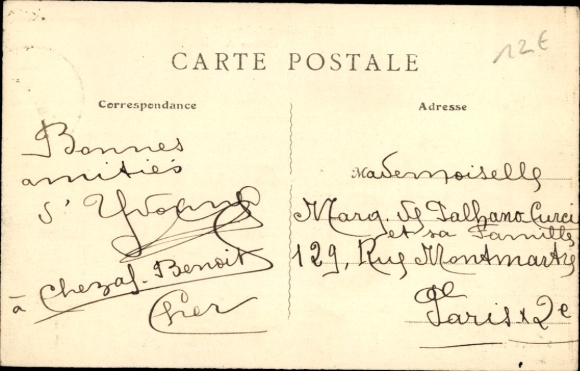 12€
CARTE POSTALE
Correspondance
Adresse
Bonnes
amitiés
d'Yvonne
à Chezal-Benoit
Cher
Mademoiselle
Marg. de Talhano Curci
et sa Famille
129, Rue Montmartre
Paris 2e